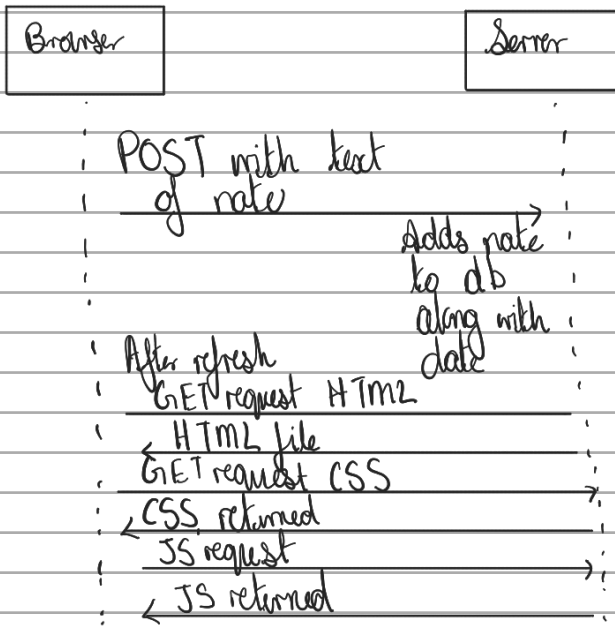 Browser
Server
POST with text
of note
Adds note
to db
along with
date
After refresh
GET request HTML
HTML file
GET request CSS
CSS returned
JS request
JS returned